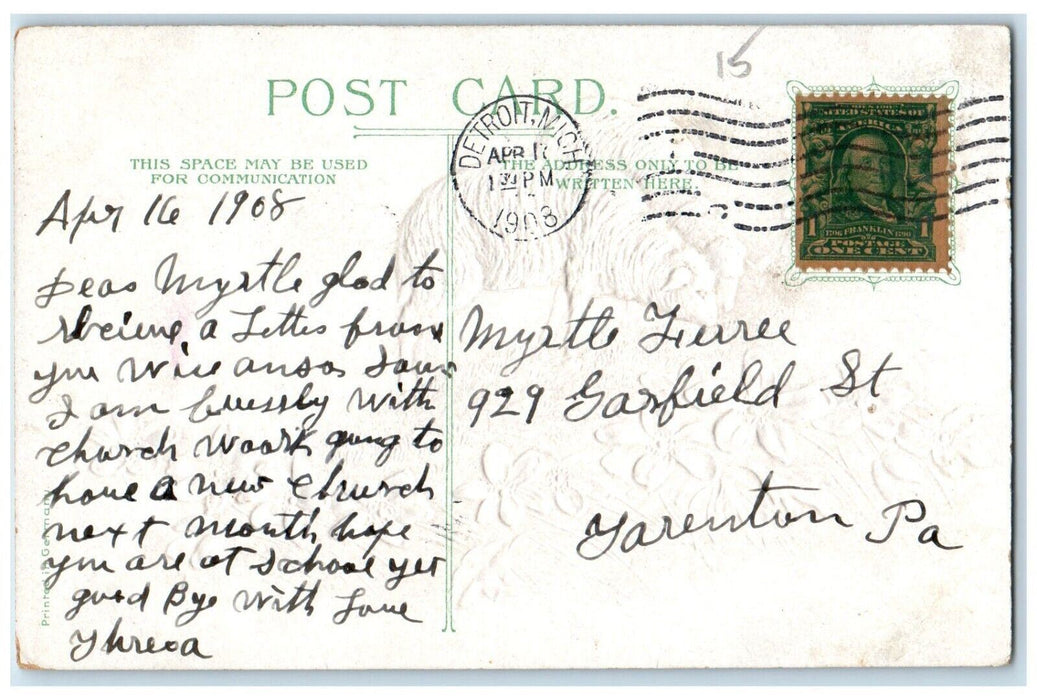 15
POST CARD.
THIS SPACE MAY BE USED
FOR COMMUNICATION
THE ADDRESS ONLY TO BE
WRITTEN HERE.
DETROIT, MICH
APR 1
1 30 PM
1908
UNITED STATES OF
AMERICA
1 1
1706 FRANKLIN 1790
POSTAGE
ONE CENT
Apr 16 1908
Dear Myrtle glad to
a Letter from
you Will
I am with
church Woork going to
have a new church
next month hope
you are at School yet
good Bye With Love
Myrtle
929 Garfield St
Tarenton Pa
Printed in Germany